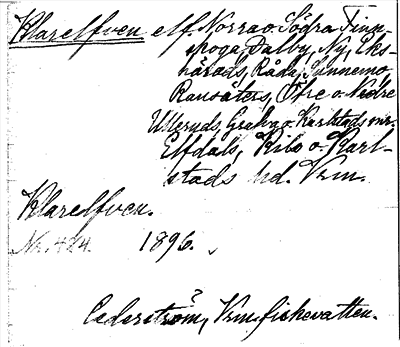 Klarelfven elf. Norra o. Södra Finn-
skoga, Dalby, Ny, Eks-
härads, Råda, Sunnemo,
Ransäters, Öfre o. Nedre
Ulleruds, Grafva o. Karlstads snr.
Elfdals, Kils o. Karl-
stads hd. Vrm.
Klarelfven.
1896.
Cederström, Vrm. fiskevatten.